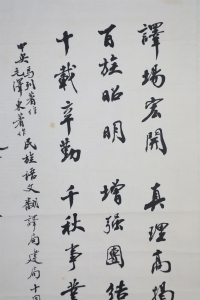 譯場宏開 真理高揚
百族昭明 增强團結
十載辛勤 千秋事業
中央馬列著作
毛澤東著作民族語文翻譯局建局十周